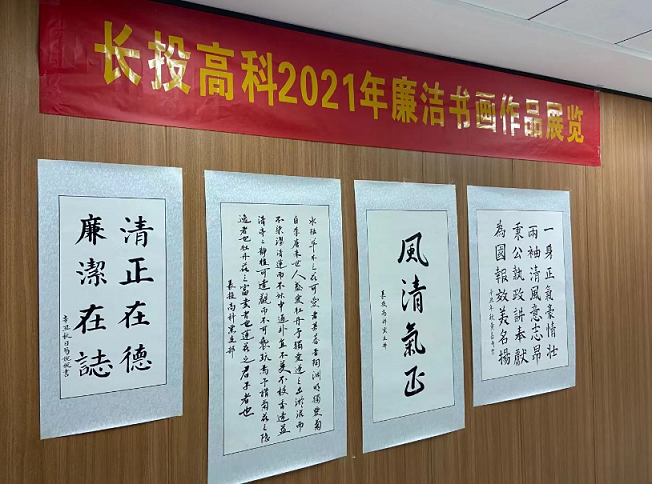 长投高科2021年廉洁书画作品展览
清正在德
廉潔在誌
辛丑秋日
書
水陸草木之花可愛者甚蕃晉陶淵明獨愛菊
自李唐來世人盛愛牡丹予獨愛蓮之出淤泥而
不染濯清漣而不妖中通外直不蔓不枝香遠益
清亭亭静植可遠觀而不可褻玩焉予謂菊花之隱
逸者也牡丹花之富貴者也蓮花之君子者也
長投高科黨支部
風清氣正
長投高科
一身正氣豪情壯
兩袖清風意志昂
秉公執政講奉獻
為國報效美名揚
辛丑年秋